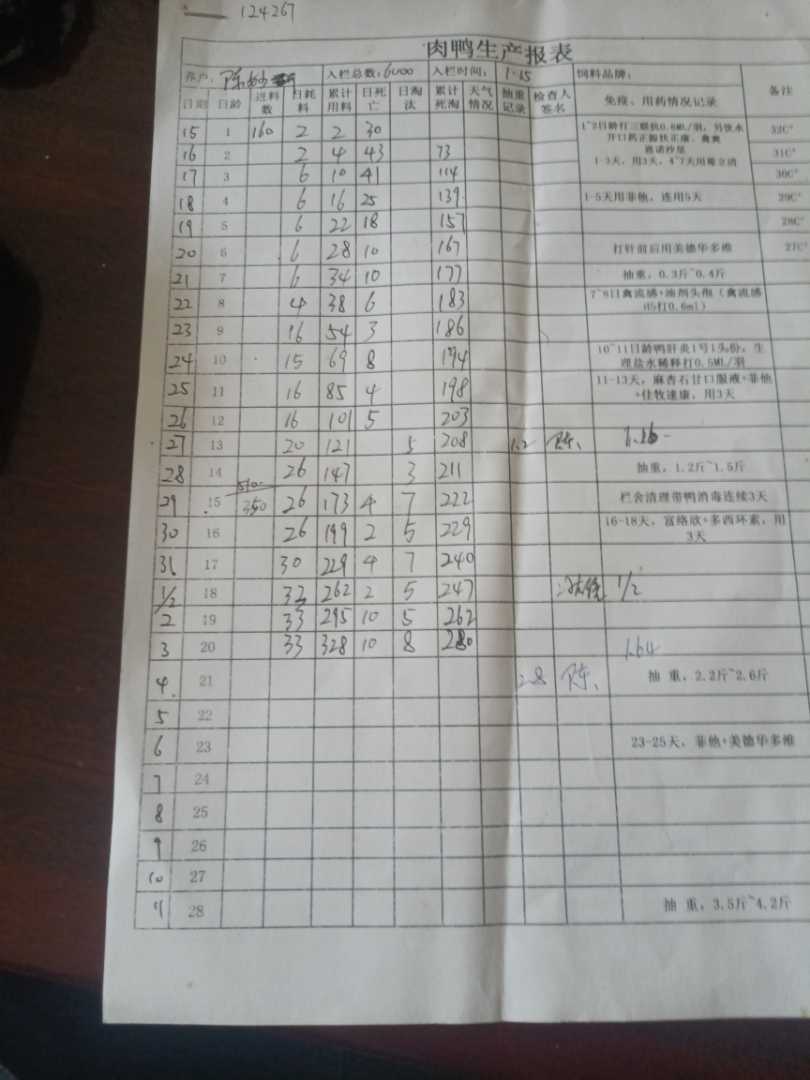 124267
肉鸭生产报表
养户： 陈 入栏总数：6000 入栏时间： 1.15 饲料品牌：
日期 日龄 进料数 日耗料 累计用料 日死亡 日淘汰 累计死淘 天气情况 抽重记录 检查人签名 免疫、用药情况记录 备注
15 1 160 2 2 30 1~2日龄打三联抗0.8ML/羽，另饮水 32C°
开口药正源扶正康、禽爽
16 2 2 4 43 73 31C°
17 3 6 10 41 114 1-3天，用3天，4~7天用 30C°
18 4 6 16 25 139 1-5天用菲他，连用5天 29C°
19 5 6 22 18 157 28C°
20 6 6 28 10 167 打针前后用美德华多维 27C°
21 7 6 34 10 177 抽重，0.3斤~0.4斤
22 8 4 38 6 183 7~8日禽流感+油剂头孢（禽流感
H5打0.6ml）
23 9 16 54 3 186
24 10 15 69 8 194 10~11日龄鸭肝炎1号1头份，生
理盐水稀释打0.5ML/羽
25 11 16 85 4 198 11-13天，麻杏石甘口服液+菲他
+佳牧速康，用3天
26 12 16 101 5 203
27 13 20 121 5 208 1.2 陈、 1.16
28 14 26 147 3 211 抽重，1.2斤~1.5斤
510
29 15 350 26 173 4 7 222 栏舍清理带鸭消毒连续3天
30 16 26 199 2 5 229 16-18天，富络欣+多西环素，用
3天
31 17 30 229 4 7 240
1/2 18 33 262 2 5 247 1/2
2 19 33 295 10 5 262
3 20 33 328 10 8 280 1.64
4 21 2.8 陈、 抽 重，2.2斤~2.6斤
5 22
6 23 23-25天，菲他+美德华多维
7 24
8 25
9 26
10 27
11 28 抽 重，3.5斤~4.2斤